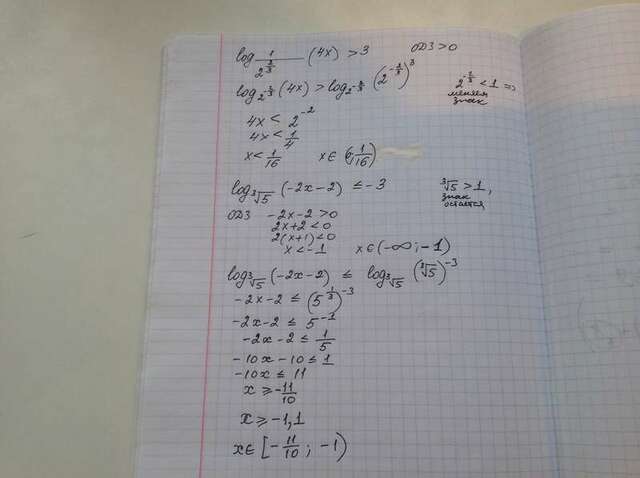 log 1/2^(2/3) (4x) > 3 ОДЗ > 0
log 2^(-2/3) (4x) > log 2^(-2/3) (2^(-2/3))^3 2^(-2/3) < 1 =>
меняем
знак
4x < 2^(-2)
4x < 1/4
x < 1/16 x ∈ (0; 1/16)
log ∛5 (-2x-2) ≤ -3 ∛5 > 1,
знак
остаётся
ОДЗ -2x-2 > 0
2x+2 < 0
2(x+1) < 0
x < -1 x ∈ (-∞; -1)
log ∛5 (-2x-2) ≤ log ∛5 (∛5)^(-3)
-2x-2 ≤ (5^(1/3))^(-3)
-2x-2 ≤ 5^(-1)
-2x-2 ≤ 1/5
-10x-10 ≤ 1
-10x ≤ 11
x ≥ -11/10
x ≥ -1,1
x ∈ [-11/10; -1)